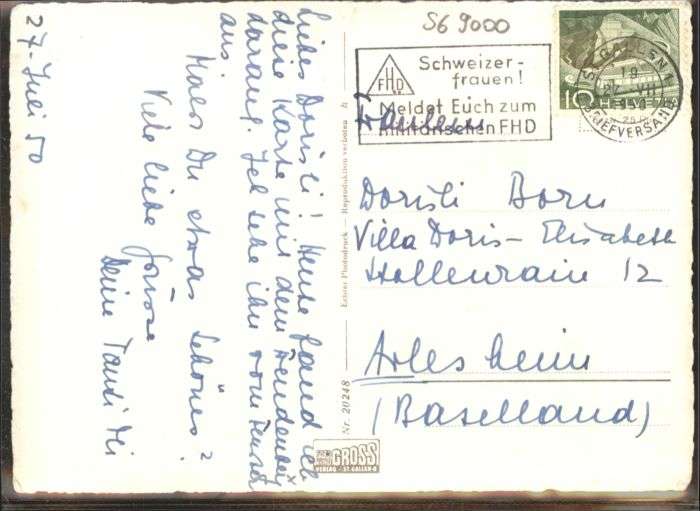 S6 9000
Schweizer-
frauen!
FHD
Meldet Euch zum
militärischen FHD
ST. GALLEN 1
18
27. VII
BRIEFVERSAND
10 HELVETIA
Fräulein
Dorisli Born
Villa Doris-Elisabeth
Hollenrain 12
Arlesheim
(Baselland)
27. Juli 50
Liebes Dorisli! Heute fand ich
diese Karte mit dem Freudenberg
darauf. Ich sehe ihn vom Fenster
aus.
Malst Du etwas Schönes?
Viele liebe Grüsse
Deine Tanti
Nr. 20248
Echter Photodruck — Reproduktion verboten
GROSS
VERLAG - ST. GALLEN